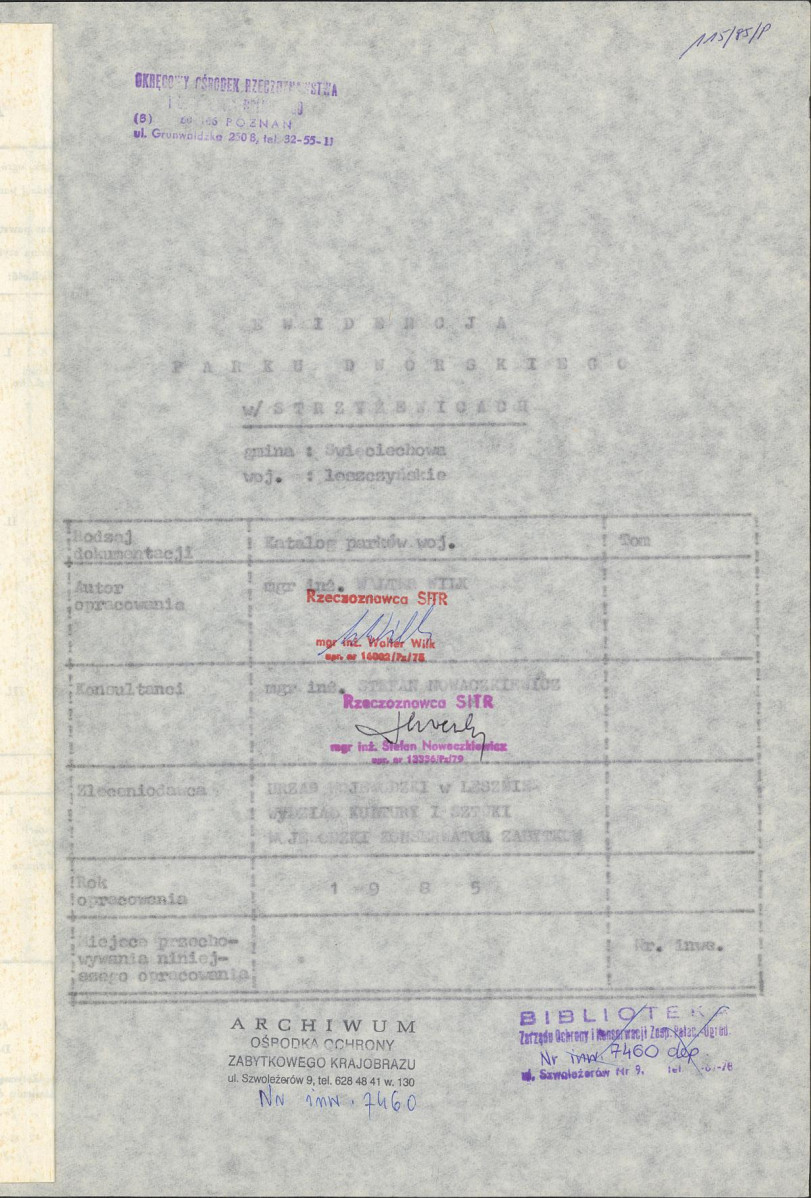 115/85/P
OKRĘGOWY OŚRODEK RZECZOZNAWSTWA
(8) POZNAŃ
ul. Grunwaldzka 250 B, tel. 32-55-11
E W I D E N C J A
P A R K U D W O R S K I E G O
w/ S T R Z Y Ż E W I C A C H
gmina : Święciechowa
woj. : leszczyńskie
Rodzaj dokumentacji
Katalog parków woj.
Tom
Autor opracowania
mgr inż. WALTER WILK
Rzeczoznawca SITR
mgr inż. Walter Wilk
upr. nr 16002/Pz/78
Konsultanci
mgr inż. STEFAN NOWACZKIEWICZ
Rzeczoznawca SITR
mgr inż. Stefan Nowaczkiewicz
upr. nr 13356/Pz/79
Zleceniodawca
URZĄD WOJEWÓDZKI w LESZNIE
WYDZIAŁ KULTURY I SZTUKI
WOJEWÓDZKI KONSERWATOR ZABYTKÓW
Rok opracowania
1 9 8 5
Miejsce przecho-
wywania niniej-
szego opracowania
Nr. inwe.
ARCHIWUM
OŚRODKA OCHRONY
ZABYTKOWEGO KRAJOBRAZU
ul. Szwoleżerów 9, tel. 628 48 41 w. 130
Nr inw. 7460
BIBLIOTEKA
Zarządu Ochrony i Konserwacji Zesp. Pałac.-Ogrod.
Nr inw. 7460 dep.
ul. Szwoleżerów Nr 9, tel